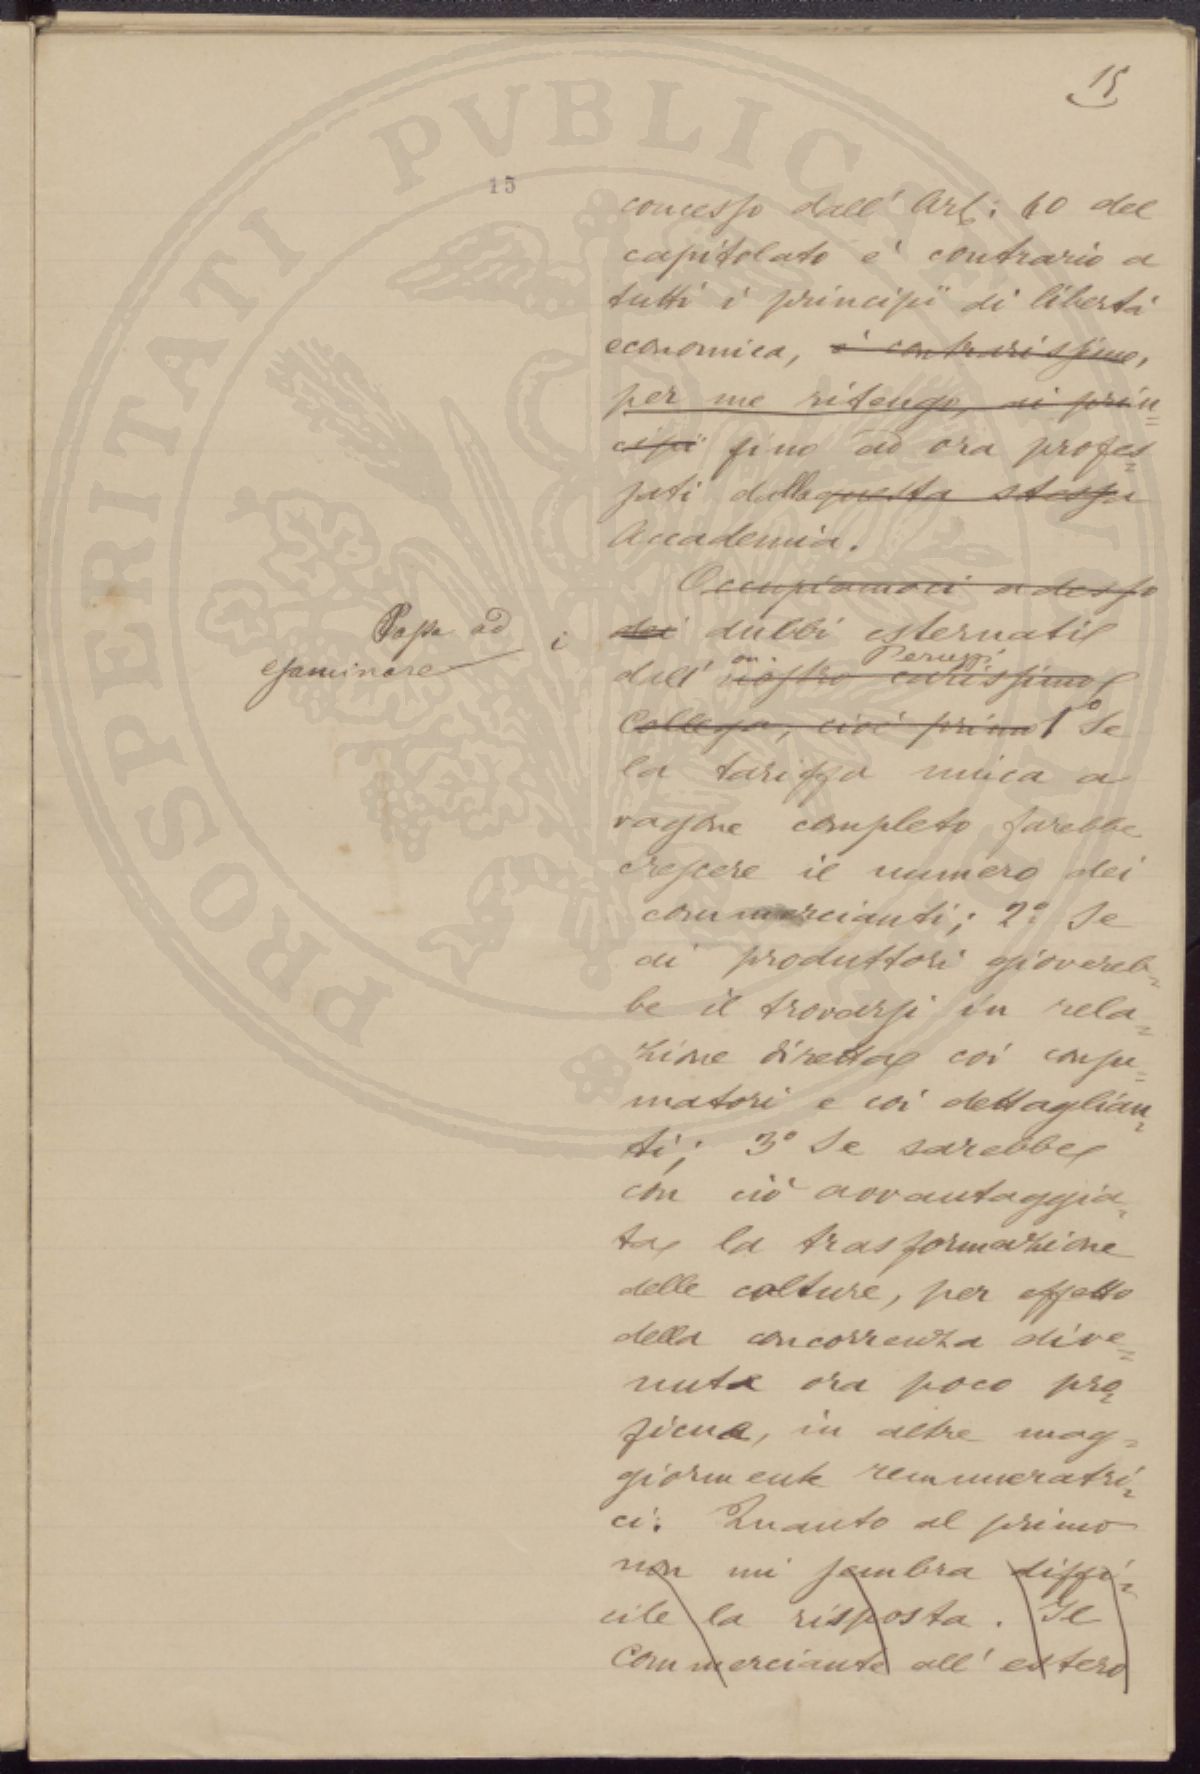 15
15
concesso dall' Art: 60 del
capitolato è contrario a
tutti i principii di libertà
economica, è contrarissimo,
per me ritengo, ai prin=
cipii fino ad ora profes=
sati dalla questa stessa
Accademia.
Occupiamoci adesso
Passa ad
esaminare i
dei dubbi esternati
on. Peruzzi
dall' nostro carissimo
Collega, cioè primo 1º Se
la tariffa unica a
vagone completo farebbe
crescere il numero dei
commercianti; 2º Se
ai produttori giovereb=
be il trovarsi in rela=
zione diretta coi consu=
matori e coi dettaglian=
ti; 3º Se sarebbe
con ciò avvantaggia=
ta la trasformazione
delle colture, per effetto
della concorrenza dive=
nute ora poco pro=
ficue, in altre mag=
giormente remuneratri=
ci. Quanto al primo
non mi sembra diffi=
cile la risposta. Il
Commerciante all' estero
PROSPERITATI PVBLICAE